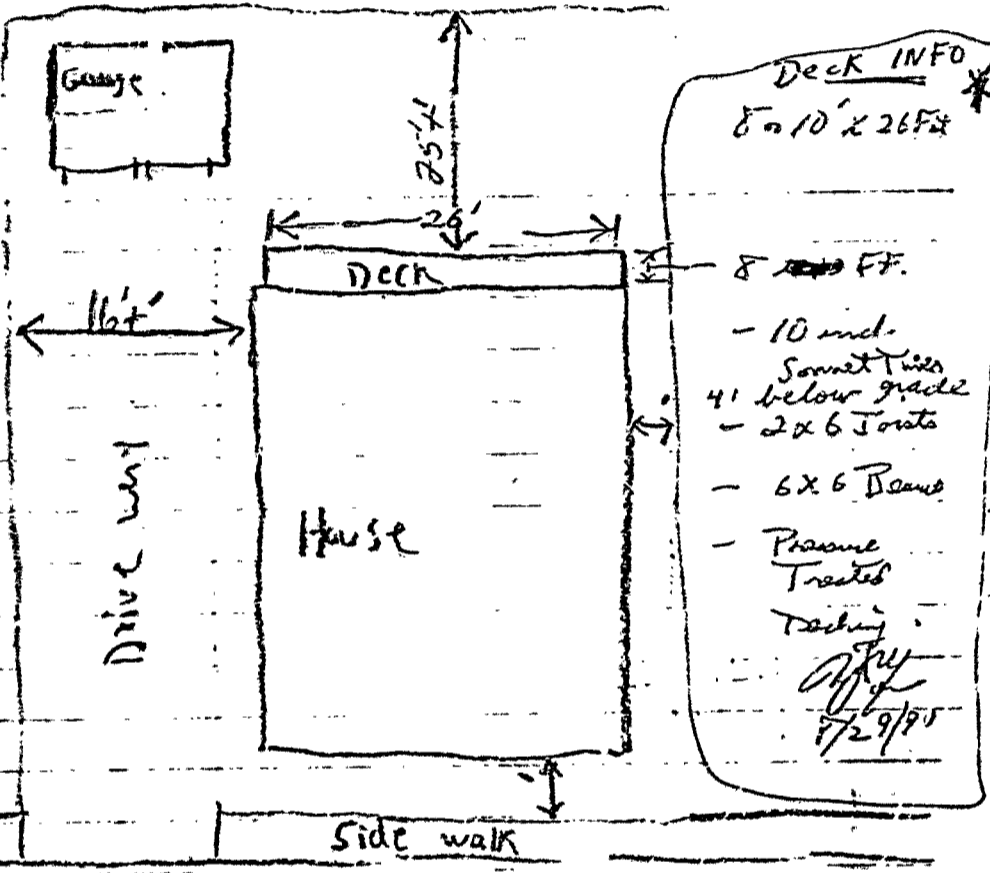 Garage
25'±'
26'
Deck
16'±'
Drive way
House
Side walk
Deck INFO *
8 or 10' x 26 Ft
8 FT.
- 10 inch
4' below grade
- 2x6 Joists
- 6x6 Beams
- Pressure
Treated
Decking.